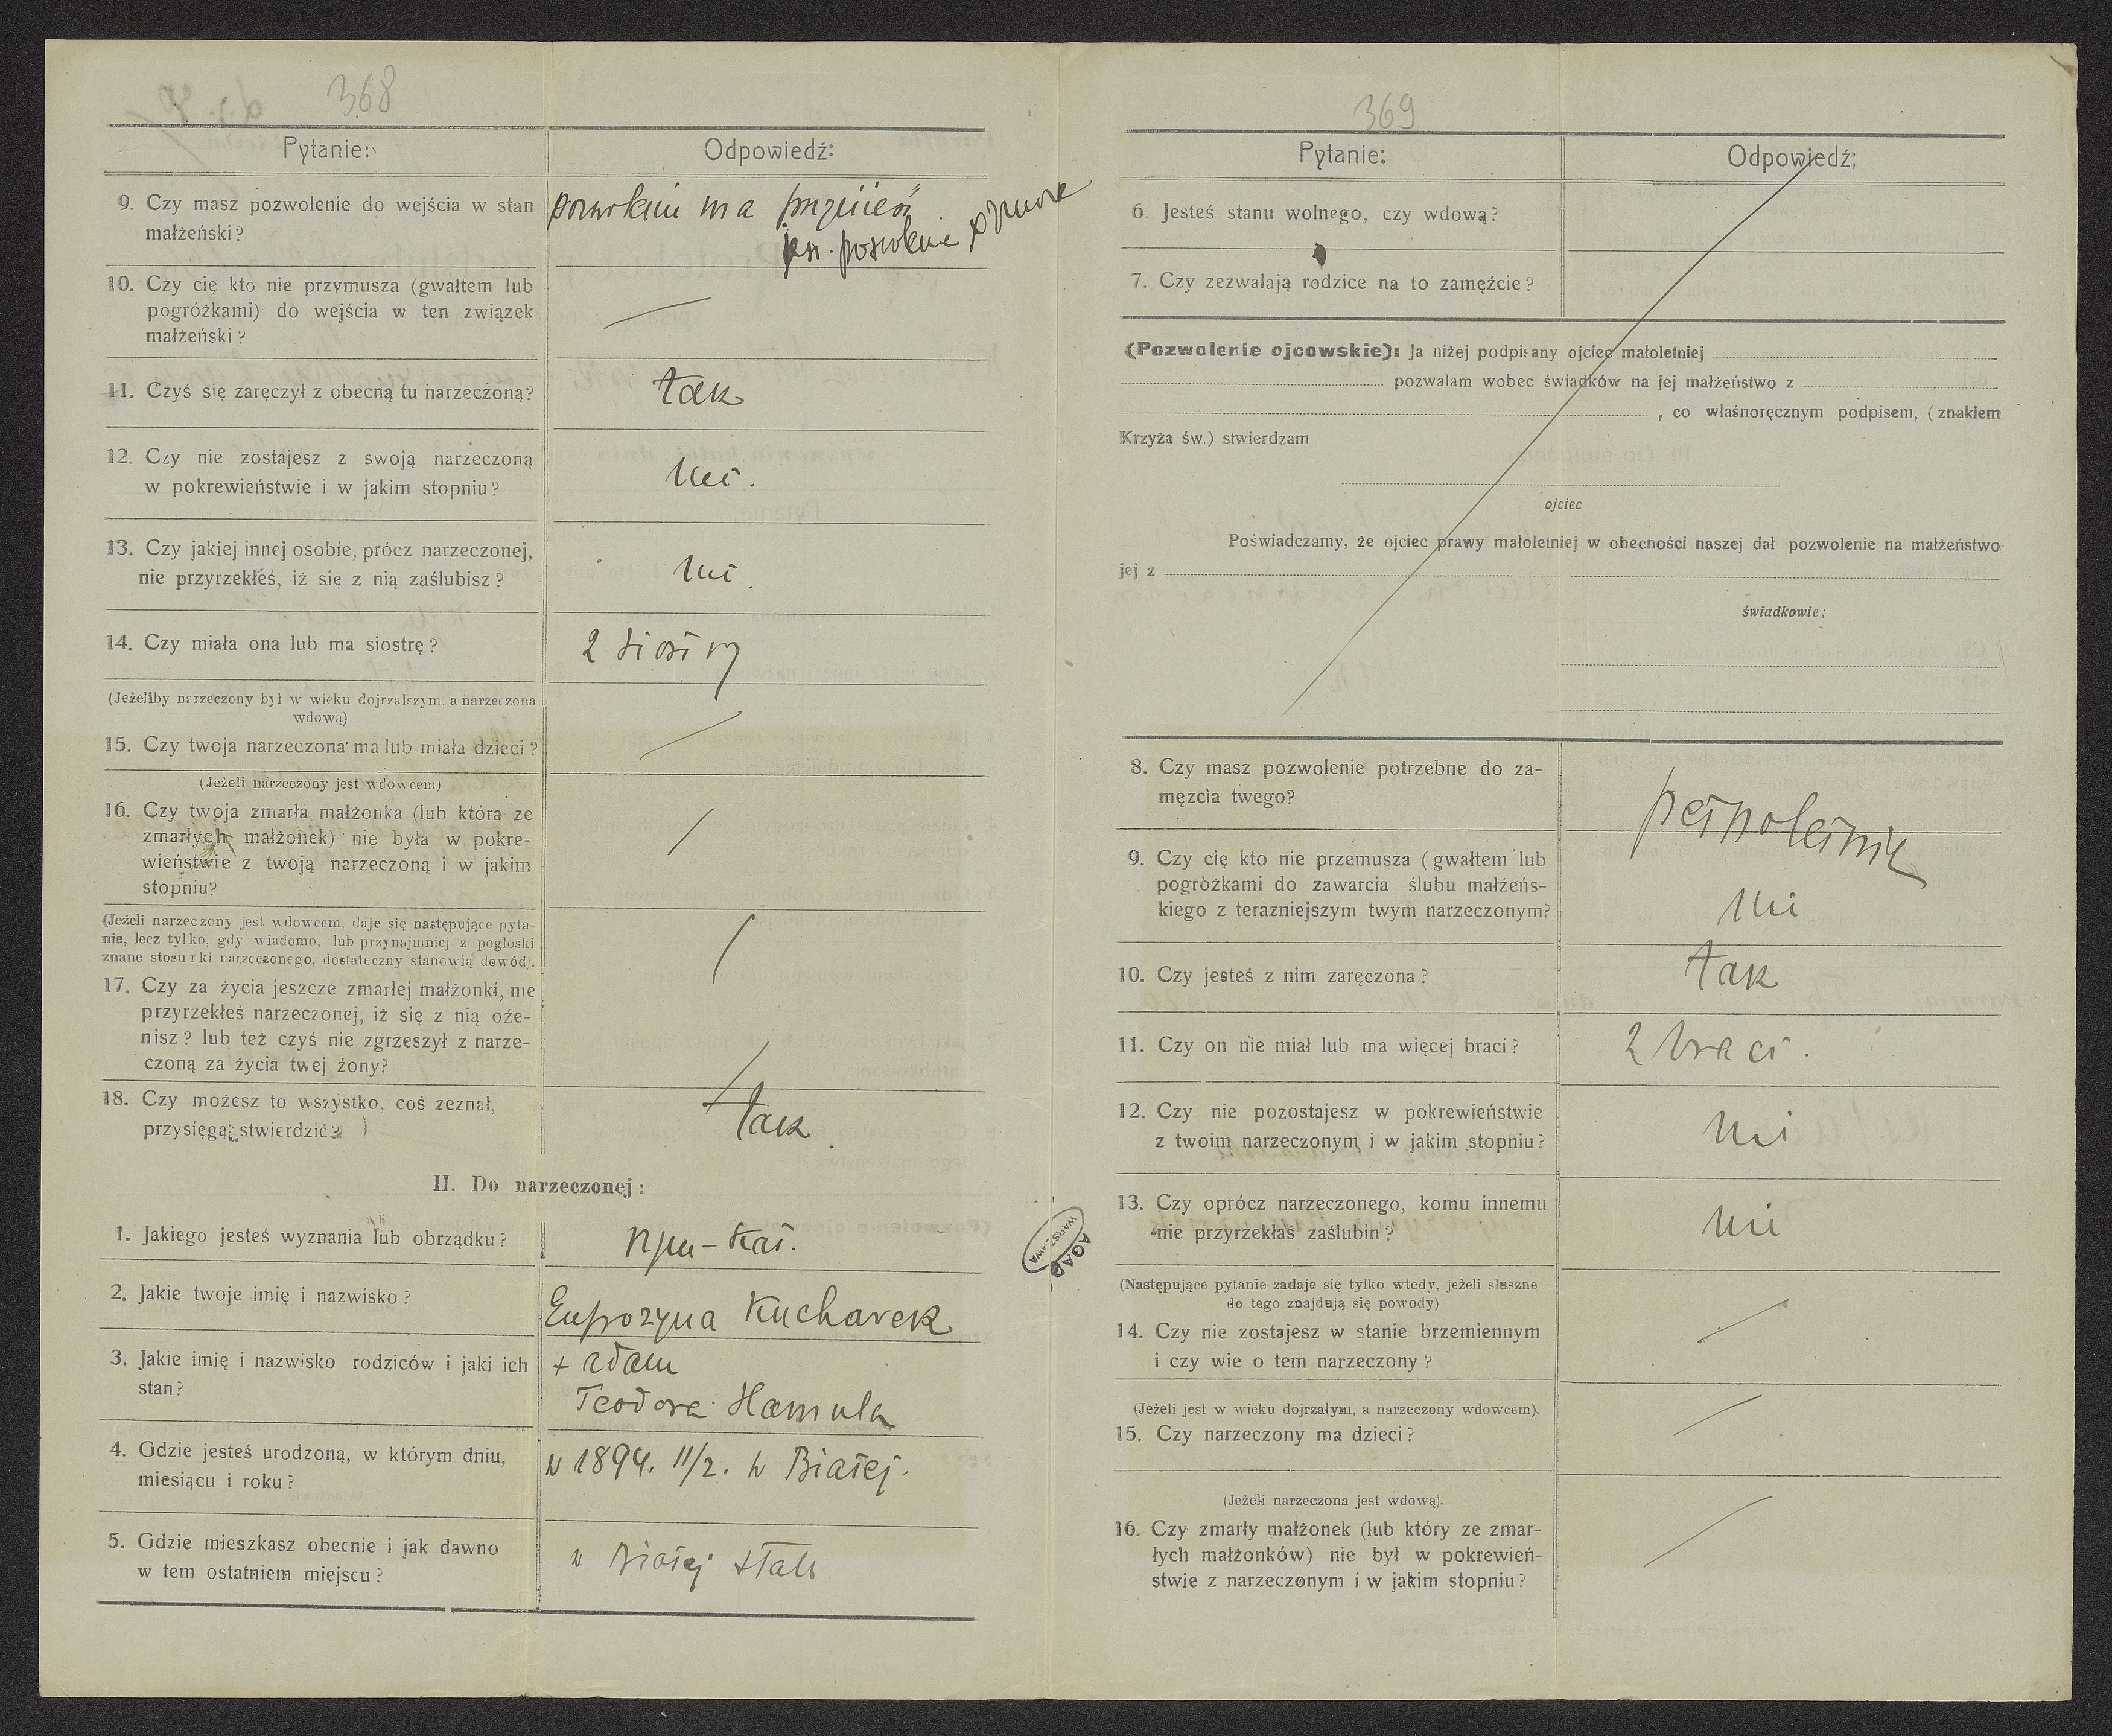 368
Pytanie:
Odpowiedź:
9. Czy masz pozwolenie do wejścia w stan
małżeński?
ma
10. Czy cię kto nie przymusza (gwałtem lub
pogróżkami) do wejścia w ten związek
małżeński?
11. Czyś się zaręczył z obecną tu narzeczoną?
tak
12. Czy nie zostajesz z swoją narzeczoną
w pokrewieństwie i w jakim stopniu?
nie.
13. Czy jakiej innej osobie, prócz narzeczonej,
nie przyrzekłeś, iż sie z nią zaślubisz?
nie.
14. Czy miała ona lub ma siostrę?
2 siostry
(Jeżeliby narzeczony był w wieku dojrzalszym, a narzeczona
wdową)
15. Czy twoja narzeczona ma lub miała dzieci?
(Jeżeli narzeczony jest wdowcem)
16. Czy twoja zmarła małżonka (lub która ze
zmarłych małżonek) nie była w pokre-
wieństwie z twoją narzeczoną i w jakim
stopniu?
(Jeżeli narzeczony jest wdowcem, daje się następujące pyta-
nie, lecz tylko, gdy wiadomo, lub przynajmniej z pogłoski
znane stosunki narzeczonego, dostateczny stanowią dowód).
17. Czy za życia jeszcze zmarłej małżonki, nie
przyrzekłeś narzeczonej, iż się z nią oże-
nisz? lub też czyś nie zgrzeszył z narze-
czoną za życia twej żony?
18. Czy możesz to wszystko, coś zeznał,
przysięgą stwierdzić?
tak
II. Do narzeczonej:
1. Jakiego jesteś wyznania lub obrządku?
2. Jakie twoje imię i nazwisko?
Eufrozyna Kucharek
3. Jakie imię i nazwisko rodziców i jaki ich
stan?
+ Adam
Teodora Hamula
4. Gdzie jesteś urodzoną, w którym dniu,
miesiącu i roku?
w 1894. 11/2. w Białej.
5. Gdzie mieszkasz obecnie i jak dawno
w tem ostatniem miejscu?
w Białej stale
AGAD
WARSZAWA
369
Pytanie:
Odpowiedź:
6. Jesteś stanu wolnego, czy wdową?
7. Czy zezwalają rodzice na to zamęźcie?
(Pozwolenie ojcowskie): Ja niżej podpisany ojciec małoletniej
pozwalam wobec świadków na jej małżeństwo z
, co właśnoręcznym podpisem, (znakiem
Krzyża św.) stwierdzam
ojciec
Poświadczamy, że ojciec prawy małoletniej w obecności naszej dał pozwolenie na małżeństwo
jej z
świadkowie:
8. Czy masz pozwolenie potrzebne do za-
męzcia twego?
pełnoletnia
9. Czy cię kto nie przemusza (gwałtem lub
pogròżkami do zawarcia ślubu małżeńs-
kiego z terazniejszym twym narzeczonym?
nie
10. Czy jesteś z nim zaręczona?
tak
11. Czy on nie miał lub ma więcej braci?
2 braci.
12. Czy nie pozostajesz w pokrewieństwie
z twoim narzeczonym i w jakim stopniu?
nie
13. Czy oprócz narzeczonego, komu innemu
nie przyrzekłaś zaślubin?
nie
(Następujące pytanie zadaje się tylko wtedy, jeżeli słuszne
do tego znajdują się powody)
14. Czy nie zostajesz w stanie brzemiennym
i czy wie o tem narzeczony?
(Jeżeli jest w wieku dojrzałym, a narzeczony wdowcem).
15. Czy narzeczony ma dzieci?
(Jeżeli narzeczona jest wdową).
16. Czy zmarły małżonek (lub który ze zmar-
łych małżonków) nie był w pokrewień-
stwie z narzeczonym i w jakim stopniu?